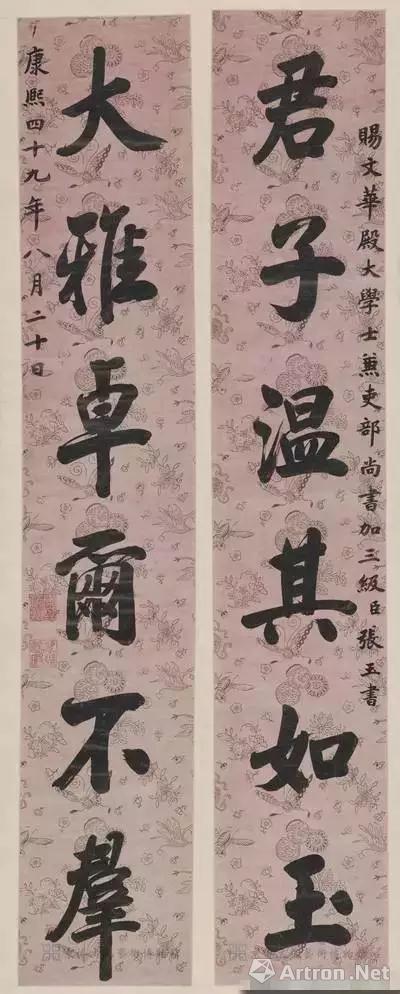 賜文華殿大學士兼吏部尚書加三級臣張玉書
君子温其如玉
大雅卓爾不羣
康熙四十九年八月二十日
Artron.Net